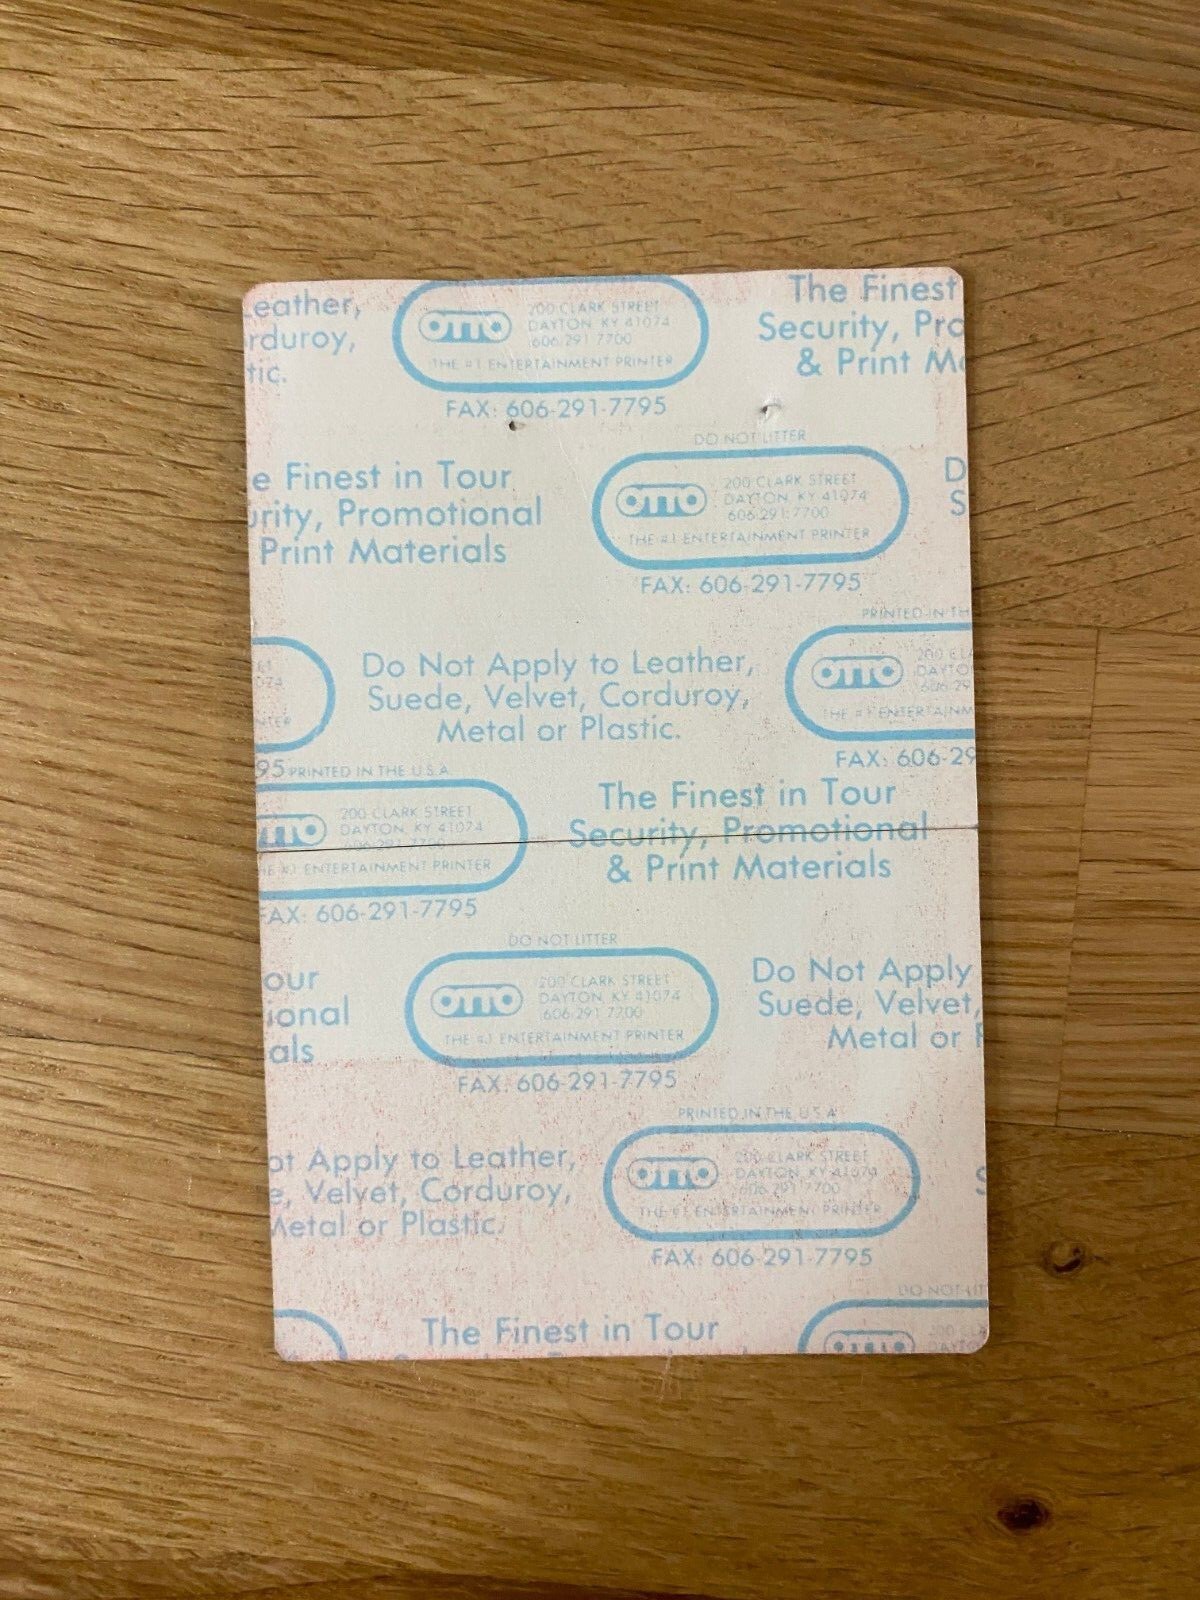 Leather,
rduroy,
tic.
OTTO
200 CLARK STREET
DAYTON, KY 41074
606 291 7700
THE #1 ENTERTAINMENT PRINTER
FAX: 606-291-7795
The Finest
Security, Pro
& Print M
e Finest in Tour
urity, Promotional
Print Materials
DO NOT LITTER
OTTO
200 CLARK STREET
DAYTON, KY 41074
606 291 7700
THE #1 ENTERTAINMENT PRINTER
FAX: 606-291-7795
D
S
074
NTER
Do Not Apply to Leather,
Suede, Velvet, Corduroy,
Metal or Plastic.
PRINTED IN TH
OTTO
200 CLA
DAYTO
606 29
THE #1 ENTERTAINM
FAX: 606-29
95
PRINTED IN THE U.S.A.
TTO
200 CLARK STREET
DAYTON, KY 41074
606 291 7700
HE #1 ENTERTAINMENT PRINTER
FAX: 606-291-7795
The Finest in Tour
Security, Promotional
& Print Materials
our
ional
als
DO NOT LITTER
OTTO
200 CLARK STREET
DAYTON, KY 41074
606 291 7700
THE #1 ENTERTAINMENT PRINTER
FAX: 606-291-7795
Do Not Apply
Suede, Velvet,
Metal or P
ot Apply to Leather,
e, Velvet, Corduroy,
Metal or Plastic.
PRINTED IN THE U.S.A.
OTTO
200 CLARK STREET
DAYTON, KY 41074
606 291 7700
THE #1 ENTERTAINMENT PRINTER
FAX: 606-291-7795
S
The Finest in Tour
DO NOT LIT
OTTO